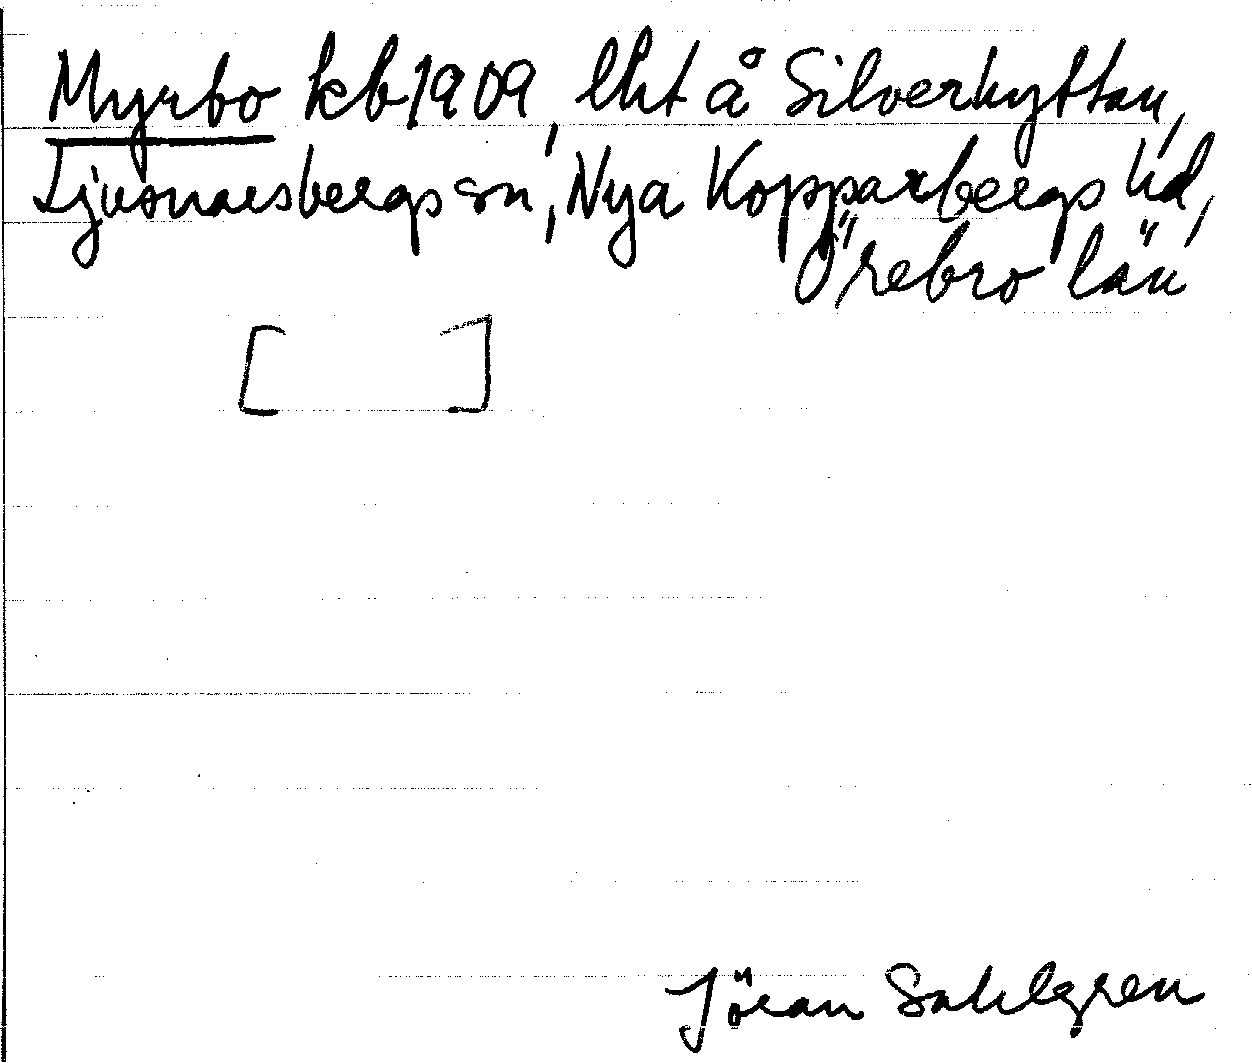 Myrbo kb 1909, lht å Silverhyttan,
Ljusnarsbergs sn, Nya Kopparbergs hd,
Örebro län
[ ]
Jöran Sahlgren